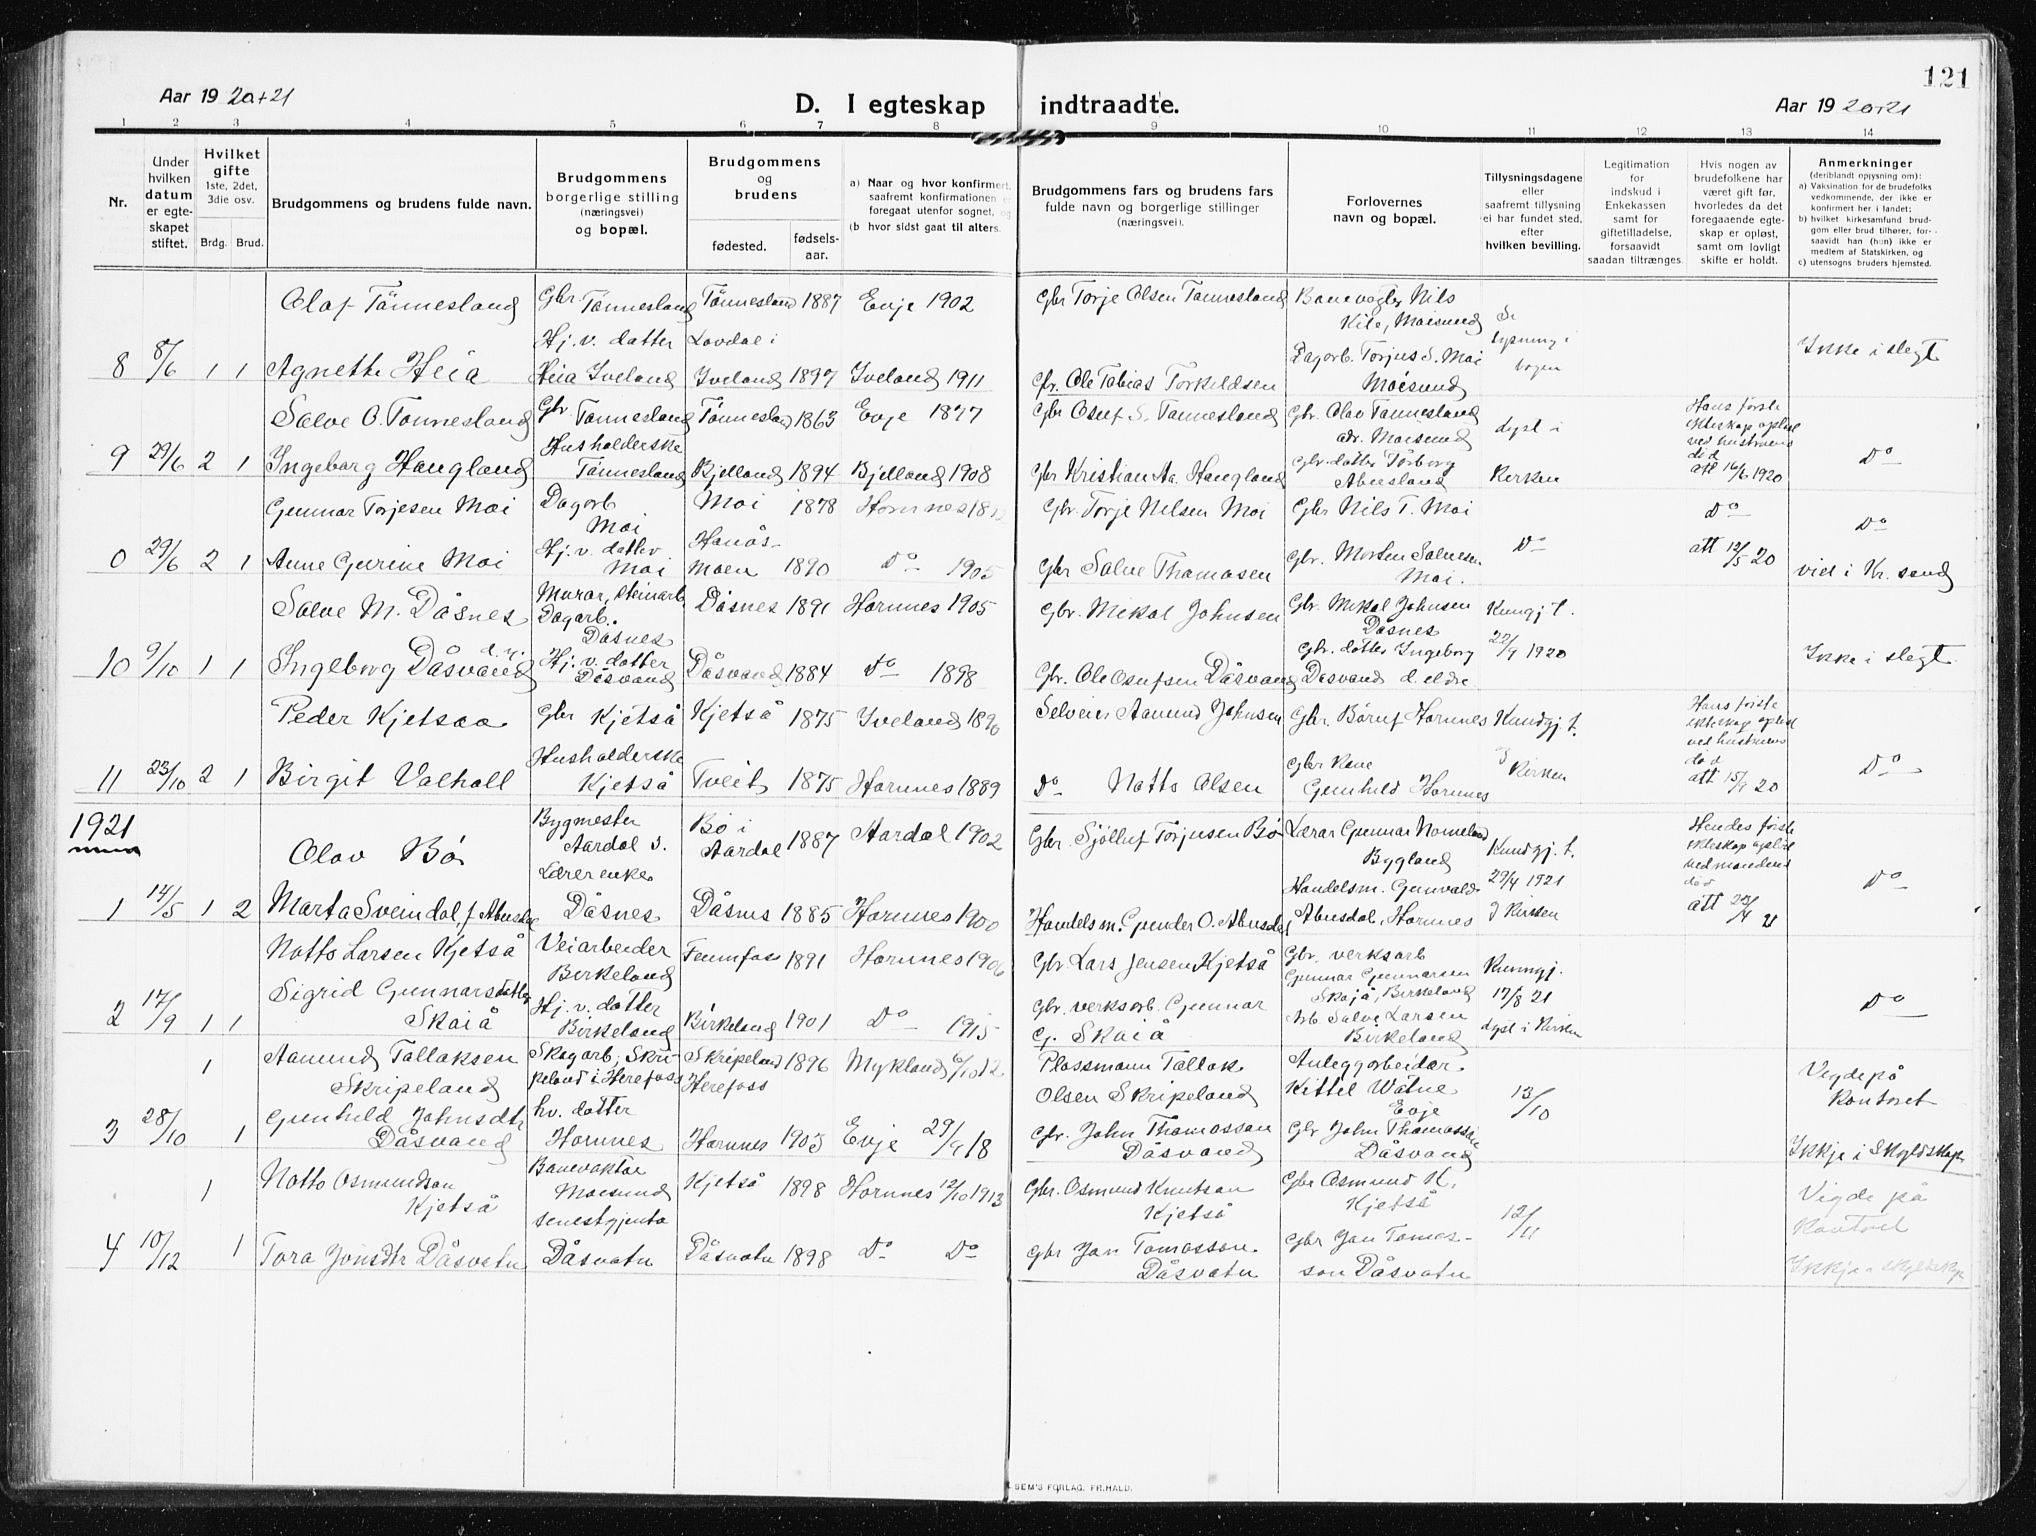 121
Aar 19 20+21
D. I egteskap indtraadte.
Aar 19 20+21
1 2 3 4 5 6 7 8 9 10 11 12 13 14
Nr.
Under
hvilken
datum
er egte-
skapet
stiftet.
Hvilket
gifte
1ste, 2det,
3die osv.
Brdg. Brud.
Brudgommens og brudens fulde navn.
Brudgommens
borgerlige stilling
(næringsvei)
og bopæl.
Brudgommens
og
brudens
fødested.
fødsels-
aar.
a) Naar og hvor konfirmert,
saafremt konfirmationen er
foregaat utenfor sognet, og
(b hvor sidst gaat til alters.
Brudgommens fars og brudens fars
fulde navn og borgerlige stillinger
(næringsvei).
Forlovernes
navn og bopæl.
Tillysningsdagene
eller
saafremt tillysning
ei har fundet sted,
efter
hvilken bevilling.
Legitimation
for
indskud i
Enkekassen
samt for
giftetilladelse,
forsaavidt
saadan tiltrænges
Hvis nogen av
brudefolkene har
været gift før,
hvorledes da det
foregaaende egte-
skap er opløst,
samt om lovligt
skifte er holdt.
Anmerkninger
(deriblandt oplysning om):
a) Vaksination for de brudefolks
vedkommende, der ikke er
konfirmert her i landet;
b) hvilket kirkesamfund brud-
gom eller brud tilhører, for-
saavidt han (hun) ikke er
medlem af Statskirken, og
c) utensogns bruders hjemsted.
Olaf Tönnesland Gbr. Tönnesland Tönnesland 1887 Evje 1902 Gbr Torje Olsen Tönnesland Banevogter Nils
Kile, Moisund
8 8/6 1 1 Agnethe Heia Hj. v. datter Heia Iveland Lovdal i Iveland 1897 Iveland 1911 Gbr. Ole Tobias Torkeldsen Dagarb. Torjus S. Moi
Moisund Se lysning i bogen Ikke i slegt
Salve O. Tönnesland Gbr Tönnesland Tönnesland 1863 Evje 1877 Gbr Osuf S. Tönnesland Gbr. Olav Tönnesland
adr. Moisund lyst i Hans første
ekteskap opløst
ved hustruens
død
att 16/6 1920
9 29/6 2 1 Ingeborg Haugland Husholderske
Tönnesland Bjelland 1894 Bjelland 1908 Gbr Kristian Aa. Haugland Gbr. datter Törborg
Abusland Kirken Do
Gunnar Torjesen Moi Dagarb
Moi Moi 1878 Hornnes Gbr. Torje Nilsen Moi Gbr Nils T. Moi Do Do
0 29/6 2 1 Anne Gurine Moi Hj. v. datter
Moi
moen 1890 Do 1905 Gbr Salve Thomasen Gbr. Morten Salvesen
Moi. Do att 12/5 20 vid i Kr. sand
Salve M. Dåsnes Murar, steinarb.
Dagarb.
Dåsnes Dåsnes 1891 Hornnes 1905 Gbr. Mikal Johnsen Gbr. Mikal Johnsen
Dåsnes Kungj t.
10 9/10 1 1 Ingeborg Dåsvand d. y. Hj. v. datter
Dåsvand Dåsvand 1884 Do 1898 Gbr. Ole Osufsen Dåsvand Gbr. datter Ingeborg
Dåsvand d. eldre 22/9 1920 Ikke i slegt
Peder Kjetsaa Gbr Kjetså Kjetså 1875 Iveland 1890 Selveier Aamund Johnsen Gbr. Hornnes Kundgj. t. Hans første
ekteskap opløst
ved hustruens
død
att 15/9 20
11 23/10 2 1 Birgit Valhall Husholderske
Kjetså Tveit 1875 Hornnes 1889 Do Notto Olsen Gbr kone
Gunhild Hornnes i Kirken Do
1921
Olav Bö Bygmester
Aardal s. Bö i
Aardal 1887 Aardal 1902 Gbr. Sjölluf Törjusen Bö Lærar Gunnar Nomeland
Bygland Kundgj. t. Hendes første
ekteskap opløst
ved mandens
død
att 22/4 21
1 14/5 1 2 Marta Sveindal, f. Abusdal Lærerenke.
Dåsnes Dåsnes 1885 Hornnes 1900 Handelsm. Gunder O. Abusdal Handelsm. Gunvald
Abusdal, Hornnes 29/4 1921
I Kirken Do
Notto Larsen Kjetså Veiarbeider
Birkeland Fennfoss 1891 Hornnes 1906 Gbr Lars Jensen Kjetså Gbr. verksarb
Gunnar Gunnarsen
Skajå, Birkeland Kunngj.
17/8 21
2 17/9 1 1 Sigrid Gunnarsdatter
Skaiå Hj. v. datter
Birkeland Birkeland 1901 Do 1915 Gbr. verksarb. Gunnar
G. Skaiå Arb Salve Larsen
Birkeland lyst i Kirken Do
1 Aamund Tallaksen
Skripeland Skogarb, Skri-
peland i Herefoss Skripeland
Herefoss 1896 Mykland 6/10 12 Plassmann Tallak
Olsen Skripeland Anleggarbeidar
Kittel Watne
Evje 13/10 Vigde på
kontoret
3 28/10 1 Gunhild Johnsdtr
Dåsvand hv. datter
Hornnes Hornnes 1903 Evje 29/9 18 Gbr. John Thomasson
Dåsvand Gbr John Thomassón
Dåsvand Ikkje i Skyldskap
1 Notto Osmundson
Kjetså Banevaktar
Moisund Kjetså 1898 Hornnes 12/10 1913 Gbr. Osmund Knutson
Kjetså Gbr Osmund K.
Kjetså 12/11 Vigde på
Kontoret
4 10/12 1 Tora Jonsdtr Dåsvatn tenestgjenta
Dåsvatn Dåsvatn 1898 Do Do Gbr Jon Tomasson
Dåsvatn Gbr Jon Tomas-
son Dåsvatn Ikkje i skyldskap
SEM'S FORLAG, FR.HALD.